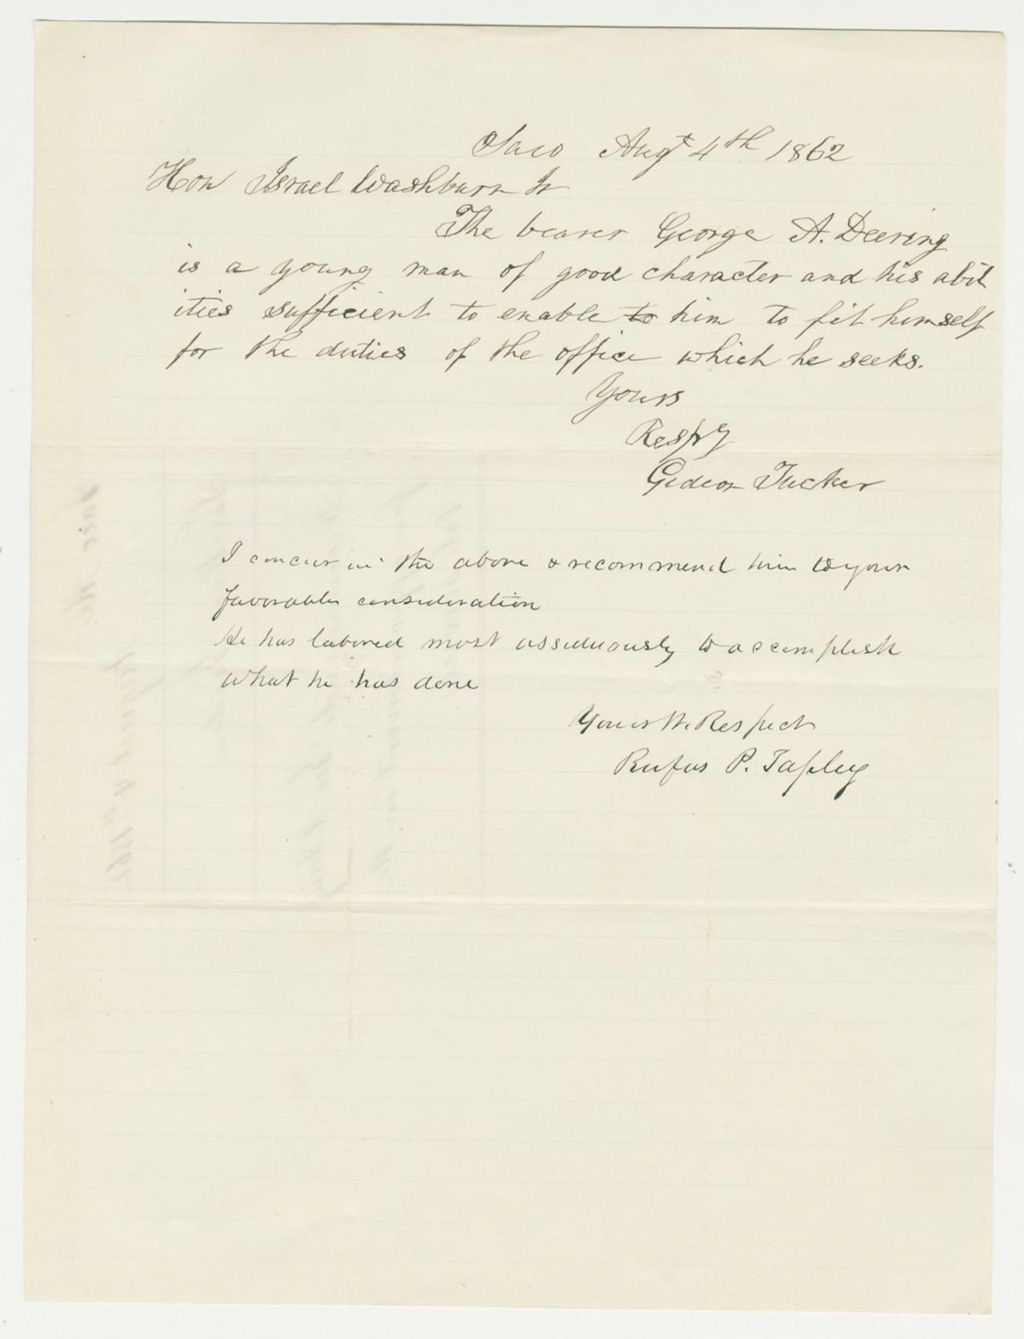 Saco Augt 4th 1862
Hon Israel Washburn Jr
The bearer George A. Deering
is a young man of good character and his abil
ities sufficient to enable to him to fit himself
for the duties of the office which he seeks.
Yours
Respy
Gideon Tucker
I concur in the above & recommend him to your
favorable consideration
He has labored most assiduously to accomplish
what he has done
Yours Respect
Rufus P. Tapley